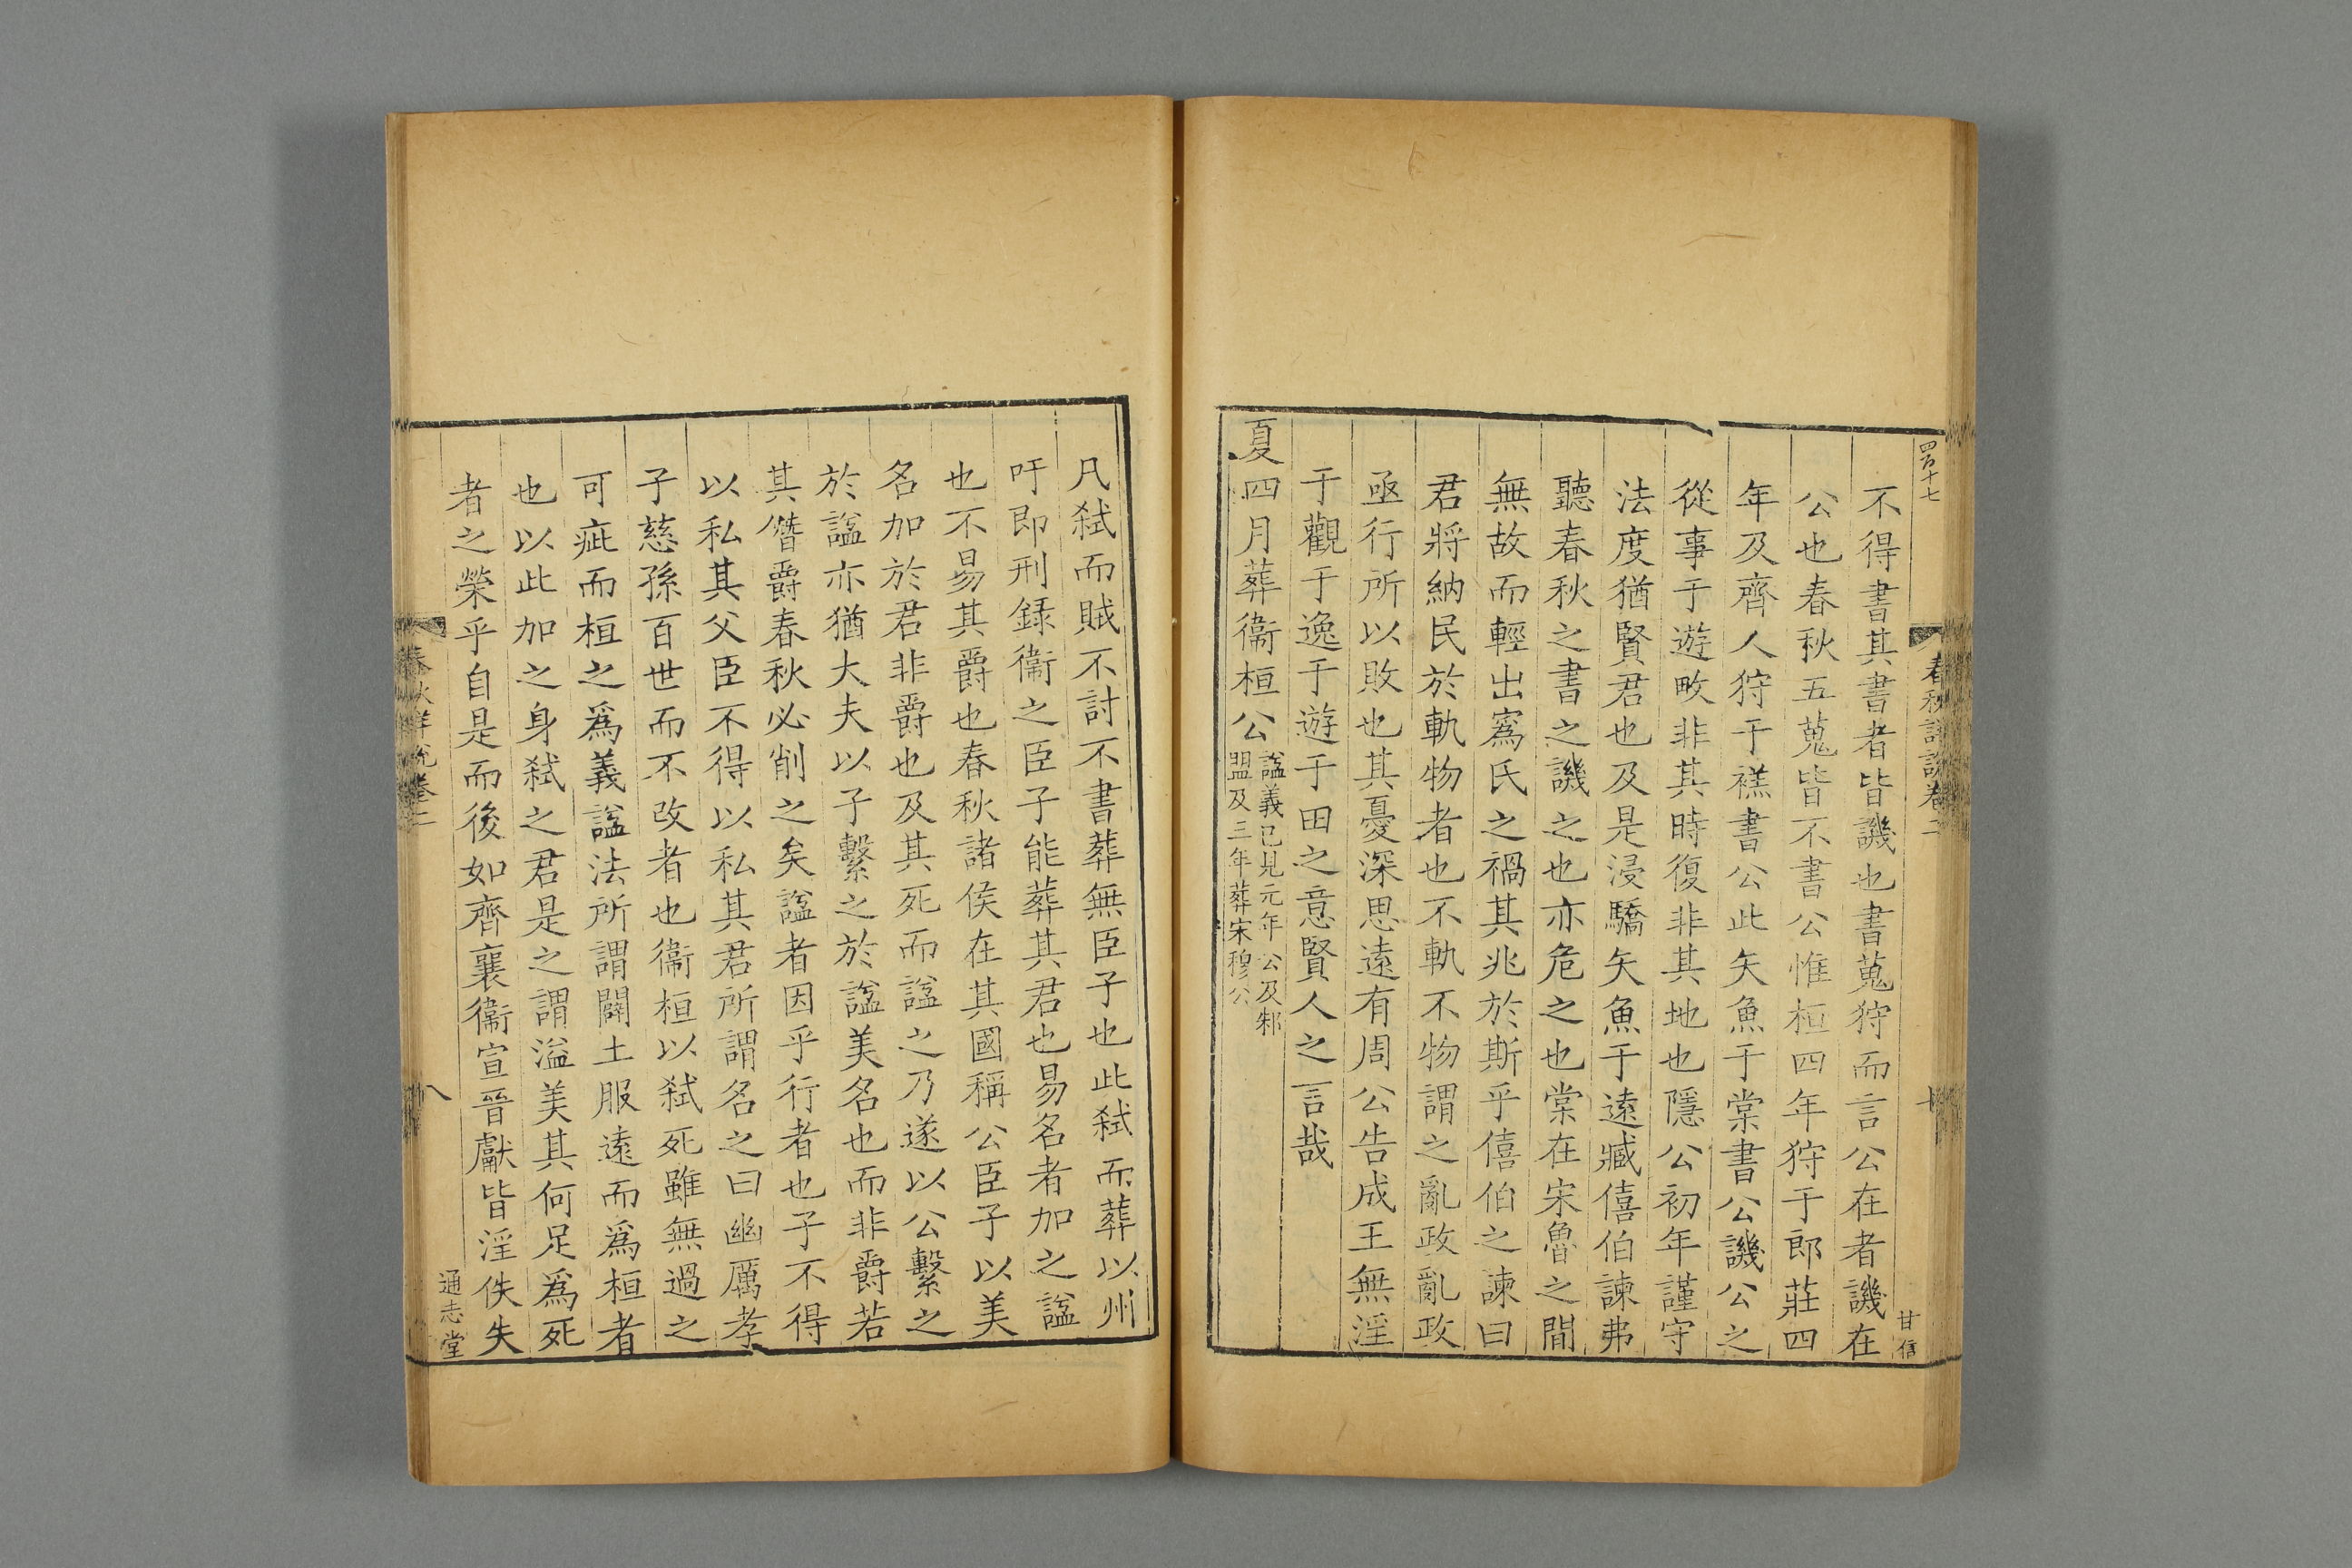 四百十七
春秋詳說卷二
甘信
不得書其書者皆譏也書蒐狩而言公在者譏在
公也春秋五蒐皆不書公惟桓四年狩于郎莊四
年及齊人狩于禚書公此矢魚于棠書公譏公之
從事于遊畋非其時復非其地也隱公初年謹守
法度猶賢君也及是浸驕矢魚于遠臧僖伯諫弗
聽春秋之書之譏之也亦危之也棠在宋魯之間
無故而輕出寪氏之禍其兆於斯乎僖伯之諫曰
君將納民於軌物者也不軌不物謂之亂政亂政
亟行所以敗也其憂深思遠有周公告成王無淫
于觀于逸于遊于田之意賢人之言哉
夏四月葬衞桓公
諡義已見元年公及邾
盟及三年葬宋穆公
凡弑而賊不討不書葬無臣子也此弑而葬以州
吁即刑錄衞之臣子能葬其君也易名者加之諡
也不易其爵也春秋諸侯在其國稱公臣子以美
名加於君非爵也及其死而諡之乃遂以公繫之
於諡亦猶大夫以子繫之於諡美名也而非爵若
其僭爵春秋必削之矣諡者因乎行者也子不得
以私其父臣不得以私其君所謂名之曰幽厲孝
子慈孫百世而不改者也衞桓以弑死雖無過之
可疵而桓之爲義諡法所謂闢土服遠而爲桓者
也以此加之身弑之君是之謂溢美其何足爲死
者之榮乎自是而後如齊襄衞宣晉獻皆淫佚失
春秋詳說卷二
八
通志堂